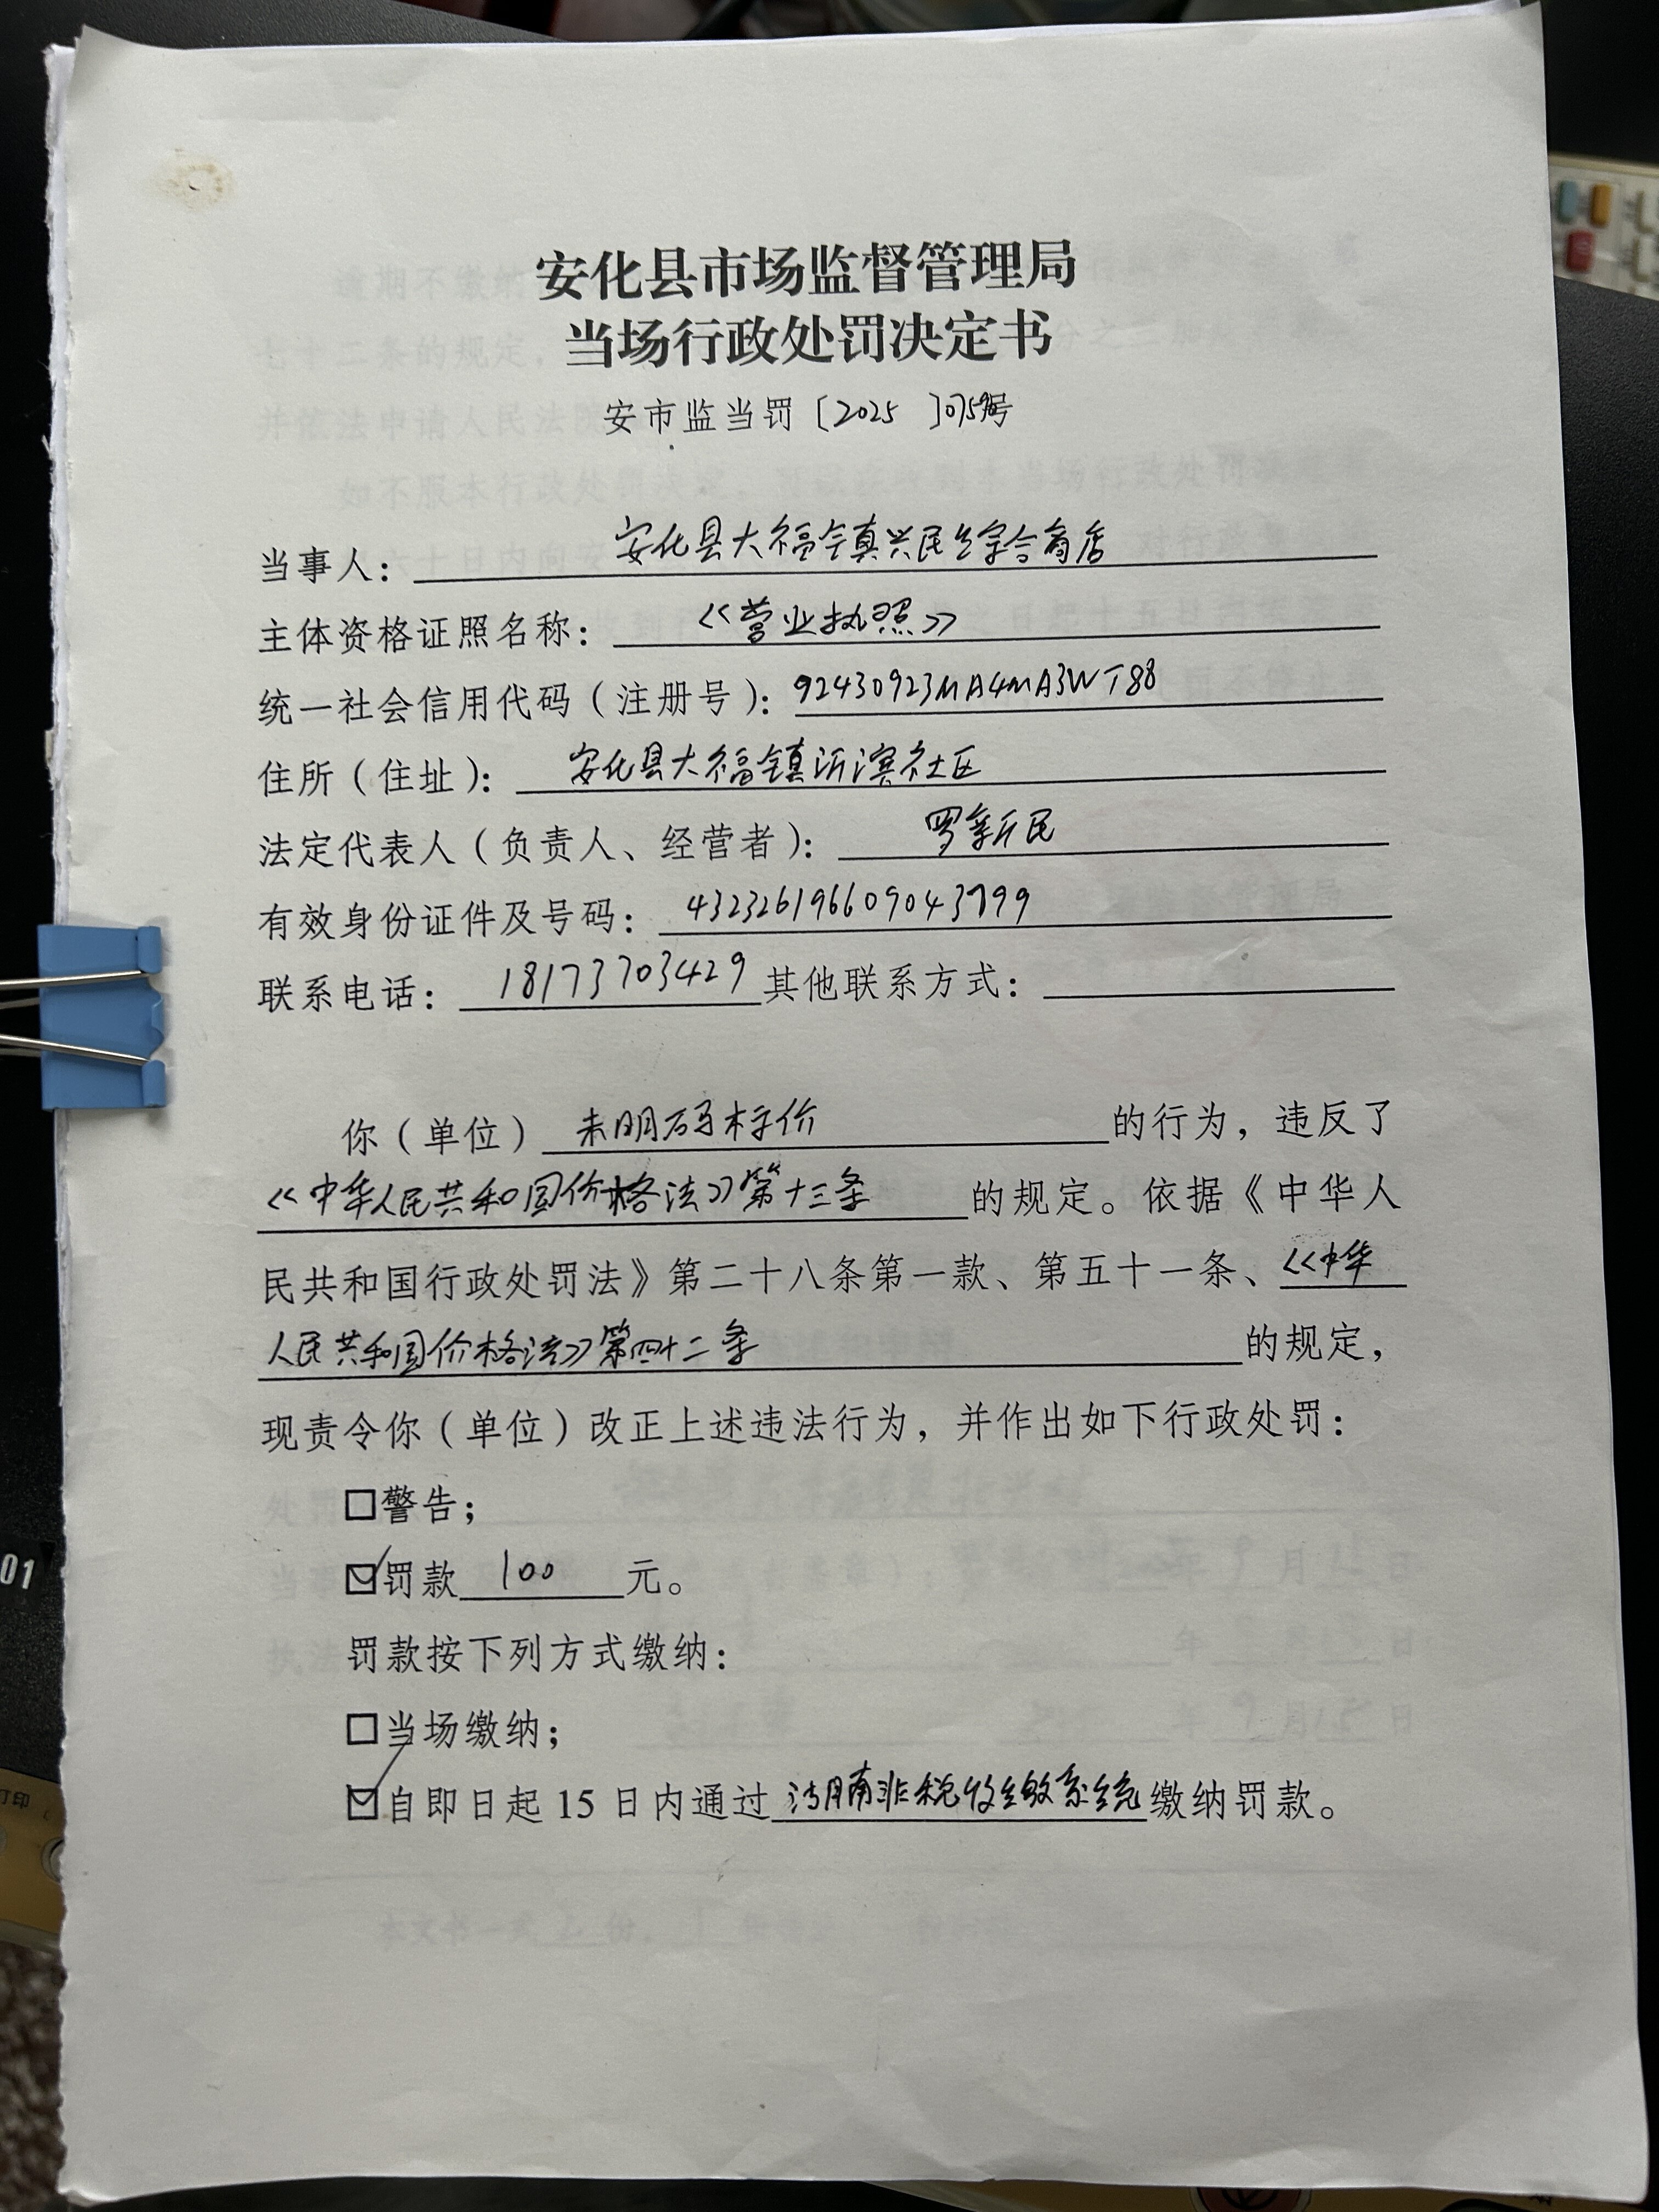 安化县市场监督管理局
当场行政处罚决定书
安市监当罚〔2025 〕号
当事人：安化县大福镇兴民综合商店
主体资格证照名称：《营业执照》
统一社会信用代码（注册号）：92430923MA4MA3WT88
住所（住址）：安化县大福镇沂滨社区
法定代表人（负责人、经营者）：罗新民
有效身份证件及号码：
联系电话：18173703429 其他联系方式：
你（单位）未明码标价的行为，违反了
《中华人民共和国价格法》第十三条的规定。依据《中华人
民共和国行政处罚法》第二十八条第一款、第五十一条、《中华
人民共和国价格法》第四十二条的规定，
现责令你（单位）改正上述违法行为，并作出如下行政处罚：
□警告；
☑罚款100元。
罚款按下列方式缴纳：
□当场缴纳；
☑自即日起15日内通过湖南非税收缴系统缴纳罚款。
01
打印